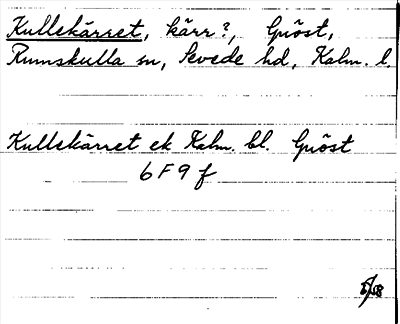 Kullekärret, kärr?, Gnöst,
Rumskulla sn, Sevede hd, Kalm. l.
Kullekärret ek Kalm. bl. Gnöst
6 F 9 f